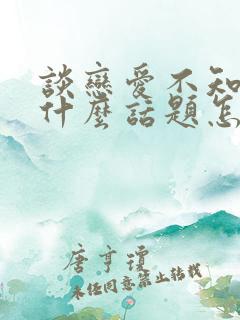 談戀愛不知
什麼話題怎
唐亨瓊
未经同意禁止转载